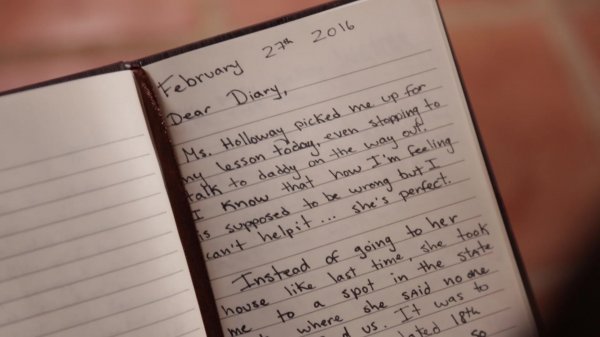 February 27th 2016
Dear Diary,
Ms. Holloway picked me up for
my lesson today, even stopping to
talk to daddy on the way out.
I know that how I'm feeling
is supposed to be wrong but I
can't help it... she's perfect.
Instead of going to her
house like last time, she took
me to a spot in the state
where she said no one
us. It was to
18th
so